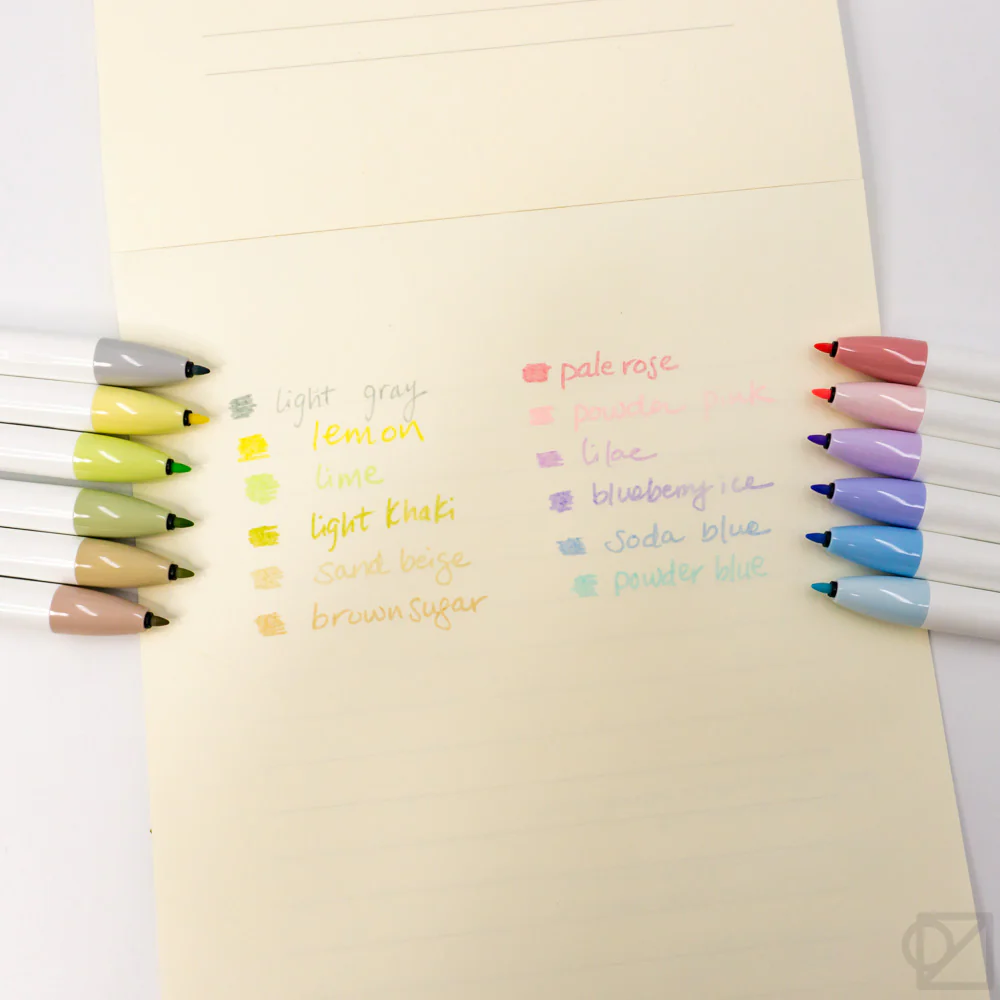 light gray
lemon
lime
light khaki
sand beige
brown sugar
pale rose
powder pink
lilac
blueberry ice
soda blue
powder blue